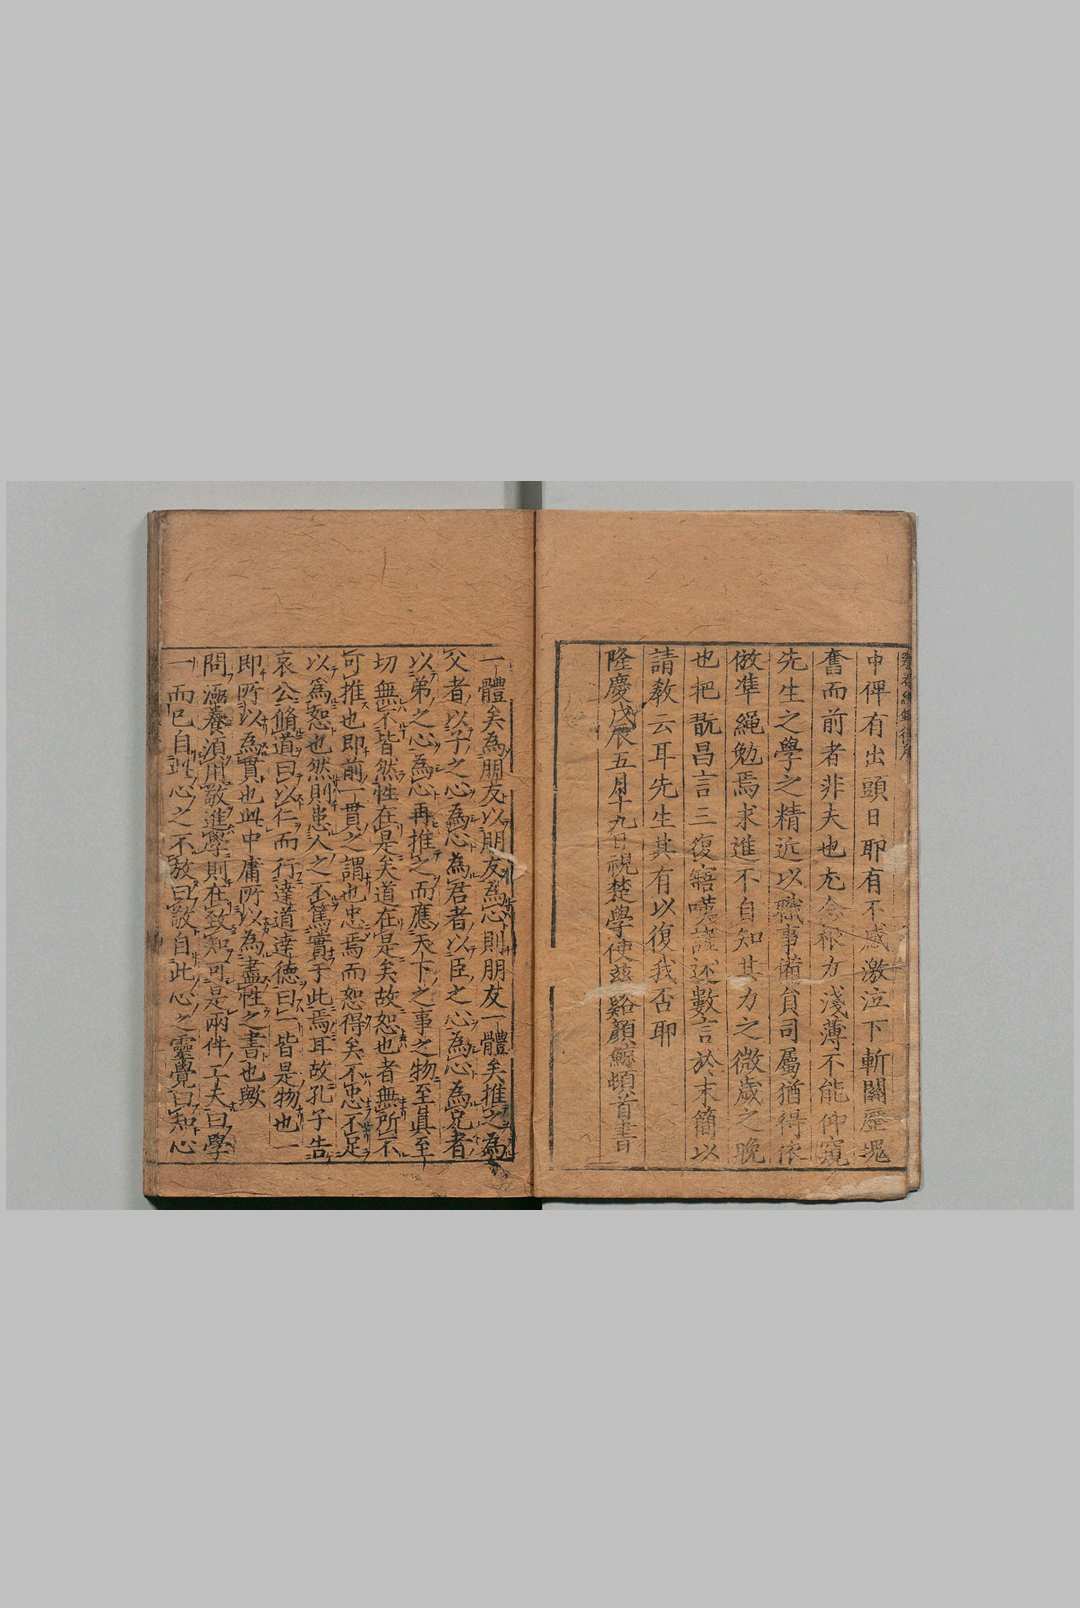 中俾有出頭日耶有不感激泣下斬關歷
奮而前者非夫也尢念根力淺薄不能仰窺
先生之學之精近以職事備員司屬猶得依
倣準繩勉焉求進不自知其力之微歲之晚
也把翫昌言三復 嘆謹述數言於末簡以
請教云耳先生其有以復我否耶
隆慶戊辰五月十九日視楚學使 谿顏鯨頓首書
一體矣為朋友以朋友為心則朋友一體矣推之為
父者以子之心為心為君者以臣之心為心為兄者
以弟之心為心再推之而應天下之事之物至眞至
切無不皆然性在是矣道在是矣故恕也者無所不
可推也即前一貫之謂也忠焉而恕得矣不忠不足
以爲恕也然則患人之不篤實于此焉耳故孔子告
哀公脩道曰以仁而行達道達德曰一皆是物也一
即所以為實也此中庸所以為盡性之書也歟
問涵養須用敬進學則在致知可是兩件工夫曰學
一而已自此心之不放曰敬自此心之靈覺曰知心